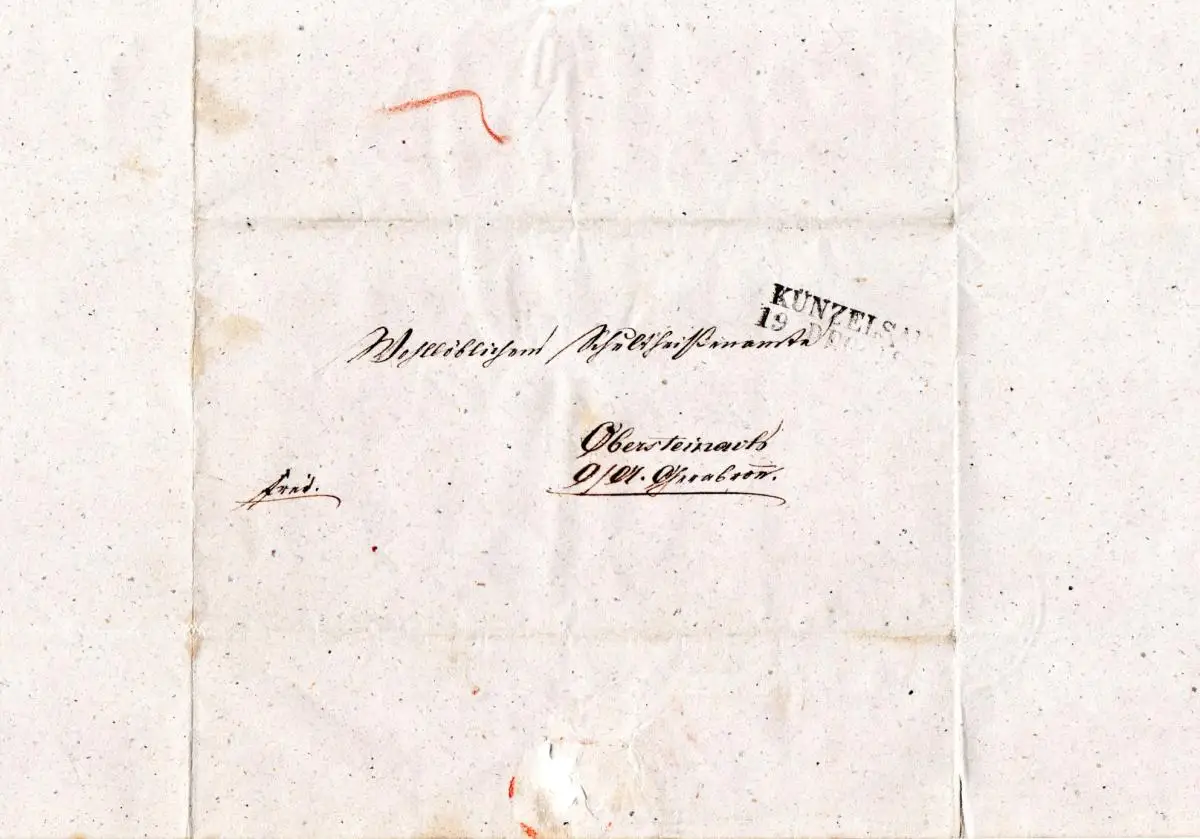 KÜNZELSAU
19 DEC
Wohllöblichem Schultheißenamte
Obersteinach
O/A. Gerabronn.
frei.